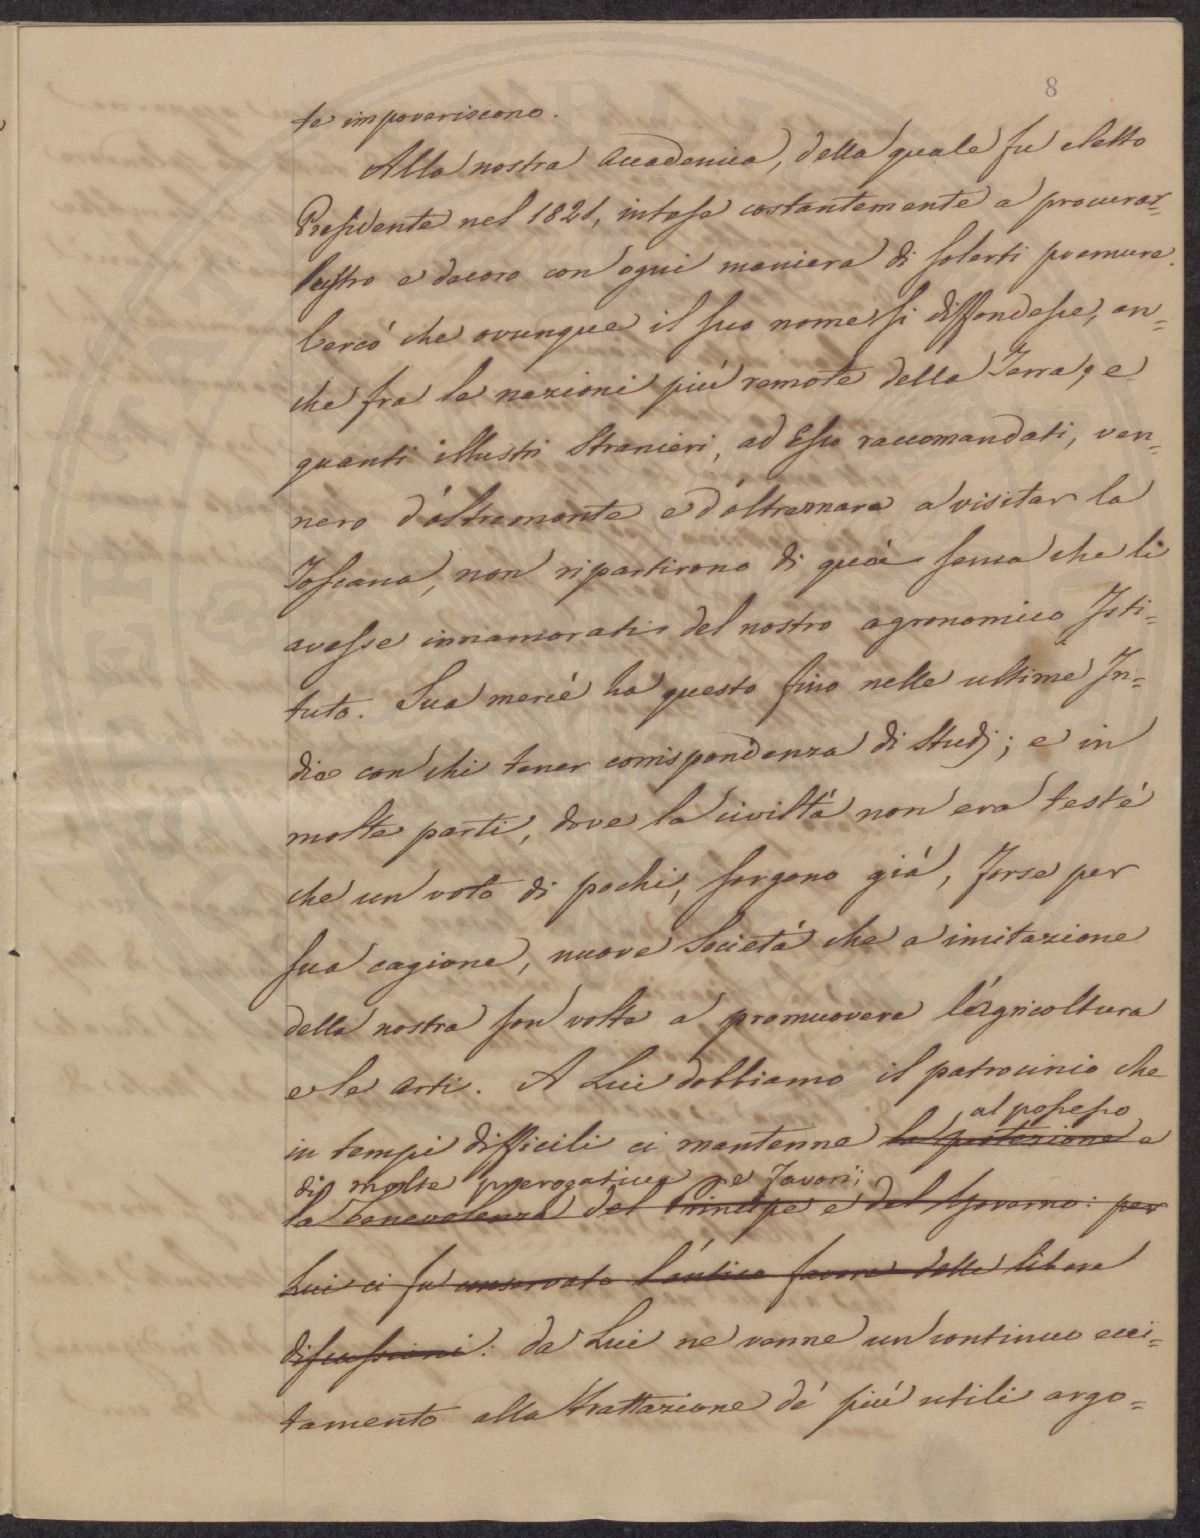 8
te impoveriscono.
Alla nostra Accademia, della quale fu eletto
Presidente nel 1821, intese costantemente a procurar=
lustro e decoro con ogni maniera di solerti premure.
Cercò che ovunque il suo nome si diffondesse, an=
che fra le nazioni più remote della Terra; e
quanti illustri Stranieri, ad Esso raccomandati, ven=
nero d'oltremonte e d'oltremare a visitar la
Toscana, non ripartirono di quà senza che li
avesse innamorati del nostro agronomico Isti=
tuto. Sua mercè ha questo fino nelle ultime In=
die con chi tener corrispondenza di Studj; e in
molte parti, dove la civiltà non era testè
che un voto di pochi, sorgono già, forse per
sua cagione, nuove Società che a imitazione
della nostra son volte a promuovere l'Agricoltura
e le Arti. A Lui dobbiamo il patrocinio che
al possesso
in tempi difficili ci mantenne la protezione e
di molte prerogative e favori;
la benevolenza del Principe e del Governo: per
Lui ci fu conservato l'antico favore delle libere
discussioni: da Lui ne venne un continuo ecci=
tamento alla trattazione de' più utili argo=